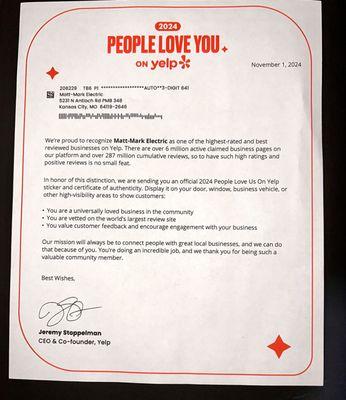 2024
PEOPLE LOVE YOU
ON yelp
November 1, 2024
206229 TB8 P1 *******************AUTO**3-DIGIT 641
Matt-Mark Electric
5231 N Antioch Rd PMB 348
Kansas City, MO 64119-2646
We're proud to recognize Matt-Mark Electric as one of the highest-rated and best
reviewed businesses on Yelp. There are over 6 million active claimed business pages on
our platform and over 287 million cumulative reviews, so to have such high ratings and
positive reviews is no small feat.
In honor of this distinction, we are sending you an official 2024 People Love Us On Yelp
sticker and certificate of authenticity. Display it on your door, window, business vehicle, or
other high-visibility areas to show customers:
• You are a universally loved business in the community
• You are vetted on the world's largest review site
• You value customer feedback and encourage engagement with your business
Our mission will always be to connect people with great local businesses, and we can do
that because of you. You're doing an incredible job, and we thank you for being such a
valuable community member.
Best Wishes,
Jeremy Stoppelman
CEO & Co-founder, Yelp